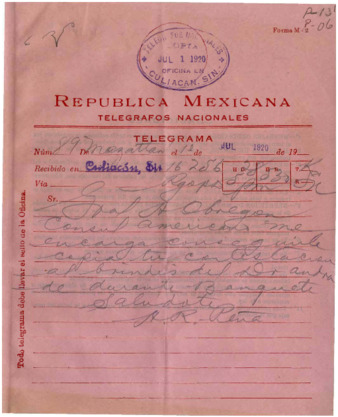 P-13
P-06
Forma M-2
TELEGRAFOS NACIONALES
JUL 1 1920
OFICINA EN
CULIACAN, SIN.
REPUBLICA MEXICANA
TELEGRAFOS NACIONALES
TELEGRAMA
Núm. 89 De Mazatlan el 1º de JUL 1920 de 19
Recibido en Culiacán, Sin
Vía
Sr.
Gral A Obregon
Consul Americano me
encarga conseguirle
copia tu contestacion
al brindis del Dr
de durante Banquete
Saludote
A. R. Peña
Todo telegrama debe llevar el sello de la Oficina.